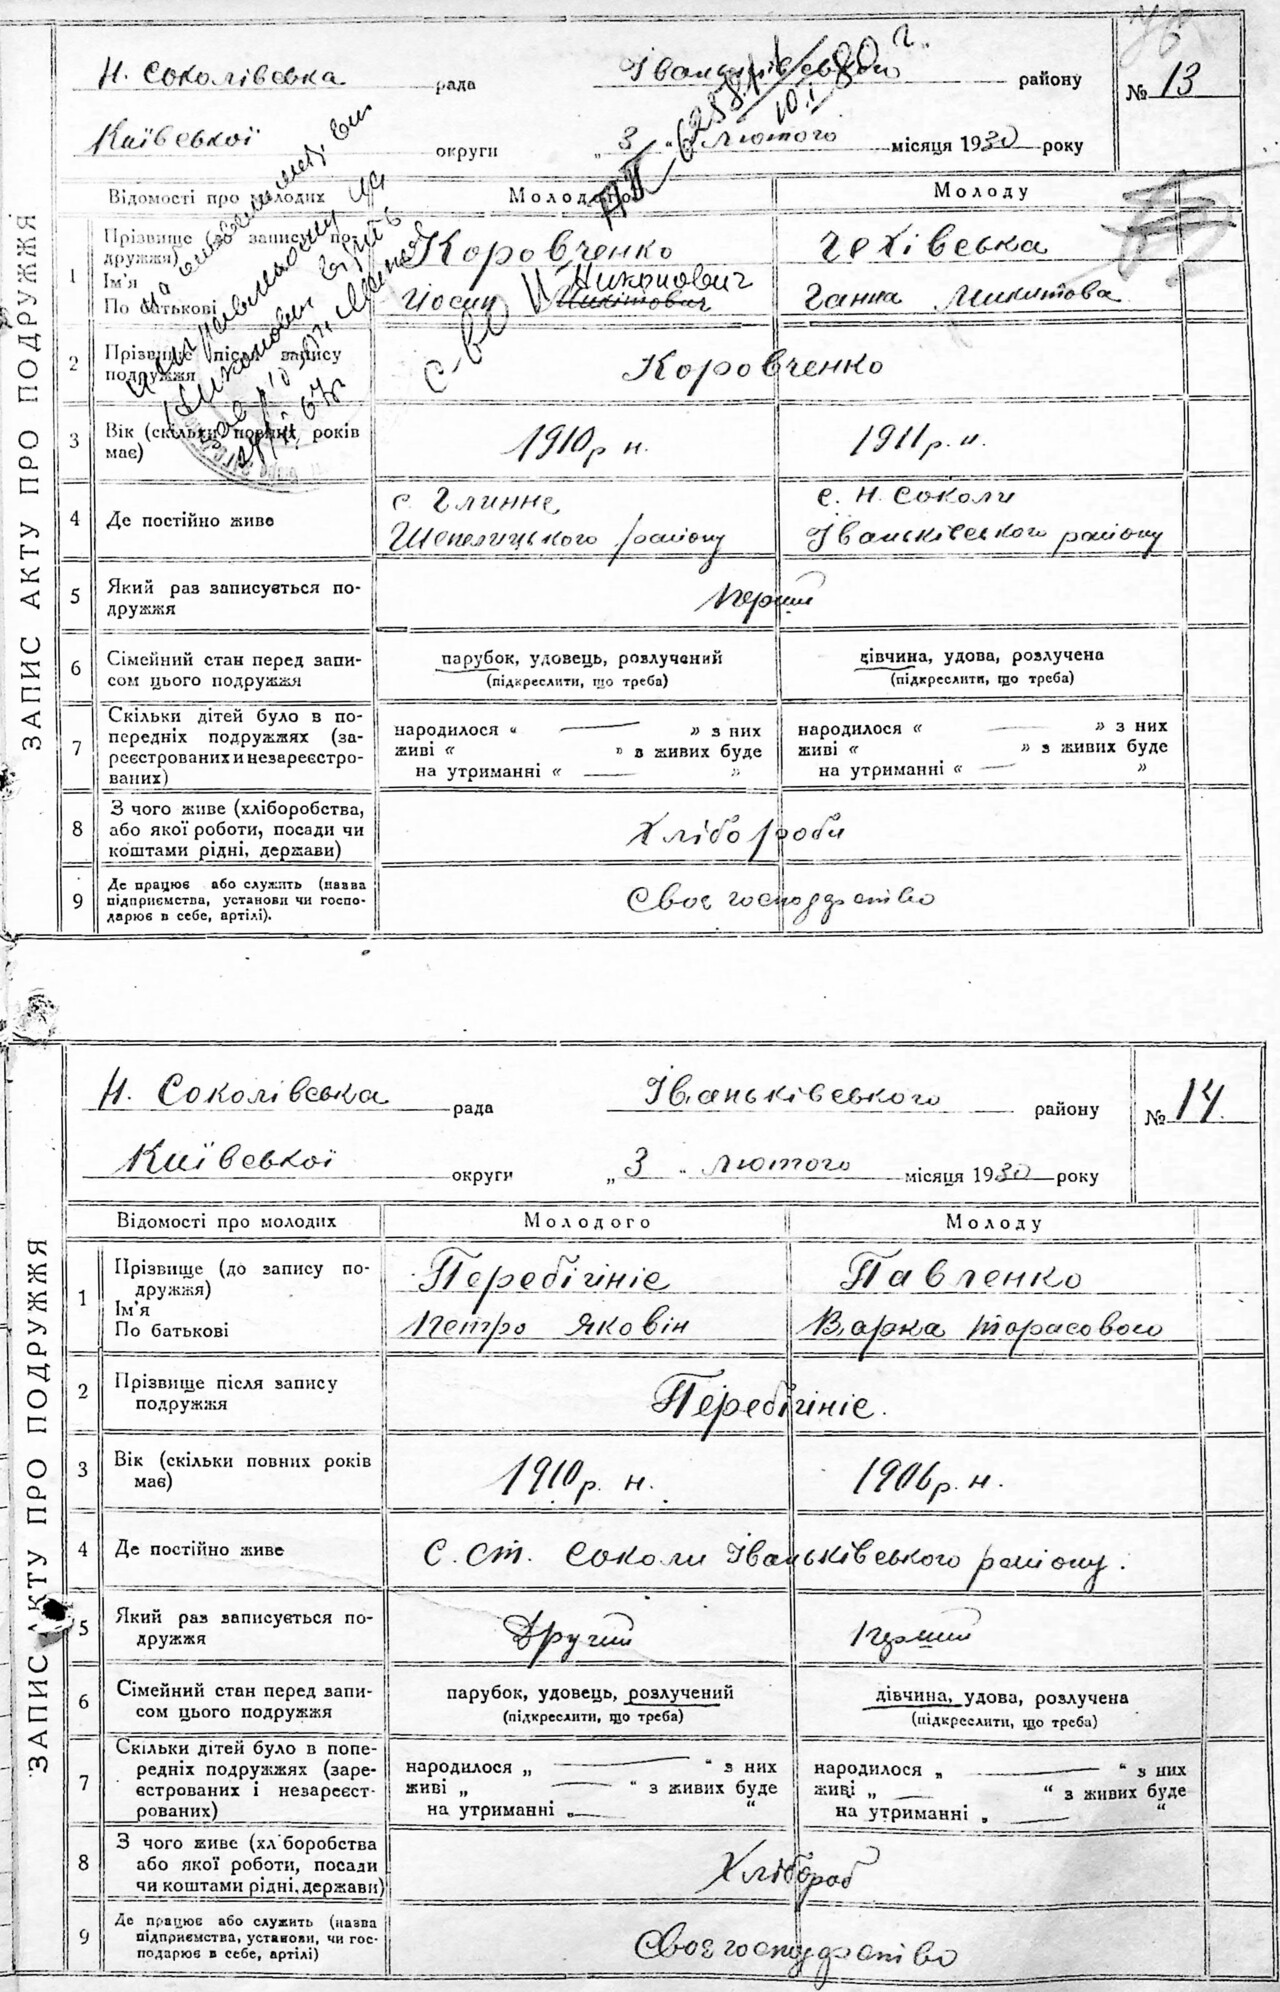 ЗАПИС АКТУ ПРО ПОДРУЖЖЯ
Н. Соколівська рада Іваньківського району № 13
Київської округи „ 3 „ Лютого місяця 1930 року
6258/1 10.I 80 г.
Відомості про молодих Молодого Молоду
1 Прізвище (до запису по-
дружжя) Коровченко Чехівська
Ім'я
По батькові Йосип Никітович Никонович Ганна Микитова
с-во
28/II 67р
2 Прізвище після запису
подружжя Коровченко
3 Вік (скільки повних років
має) 1910 р н. 1911 р. н.
4 Де постійно живе с. Глинне с. Н. Соколи
Шепелицького району Іваньківського району
5 Який раз записується по-
дружжя Перший
6 Сімейний стан перед запи-
сом цього подружжя парубок, удовець, розлучений дівчина, удова, розлучена
(підкреслити, що треба) (підкреслити, що треба)
7 Скільки дітей було в по-
передніх подружжях (за-
реєстрованих и незареєстро-
ваних) народилося « — » з них народилося « — » з них
живі « » з живих буде живі « » з живих буде
на утриманні « — » на утриманні « — »
8 З чого живе (хліборобства,
або якої роботи, посади чи
коштами рідні, держави) Хлібороби
9 Де працює або служить (назва
підприємства, установи чи госпо-
дарює в себе, артілі). Своє господарство
ЗАПИС АКТУ ПРО ПОДРУЖЖЯ
Н. Соколівська рада Іваньківського району № 14.
Київської округи „ 3 „ Лютого місяця 1930 року
Відомості про молодих Молодого Молоду
1 Прізвище (до запису по-
дружжя) Перебігініс Павленко
Ім'я
По батькові Петро Яковін Варка Тарасового
2 Прізвище після запису
подружжя Перебігініс.
3 Вік (скільки повних років
має) 1910 р. н. 1906 р. н.
4 Де постійно живе С. Ст. Соколи Іваньківського району.
5 Який раз записується по-
дружжя Другий Перший
6 Сімейний стан перед запи-
сом цього подружжя парубок, удовець, розлучений дівчина, удова, розлучена
(підкреслити, що треба) (підкреслити, що треба)
7 Скільки дітей було в попе-
редніх подружжях (заре-
єстрованих і незареєст-
рованих) народилося „ — “ з них народилося „ — “ з них
живі „ — “ з живих буде живі „ — “ з живих буде
на утриманні „ — “ на утриманні „ — “
8 З чого живе (хл боробства
або якої роботи, посади
чи коштами рідні, держави) Хлібороб
9 Де працює або служить (назва
підприємства, установи, чи гос-
подарює в себе, артілі) Своє господарство